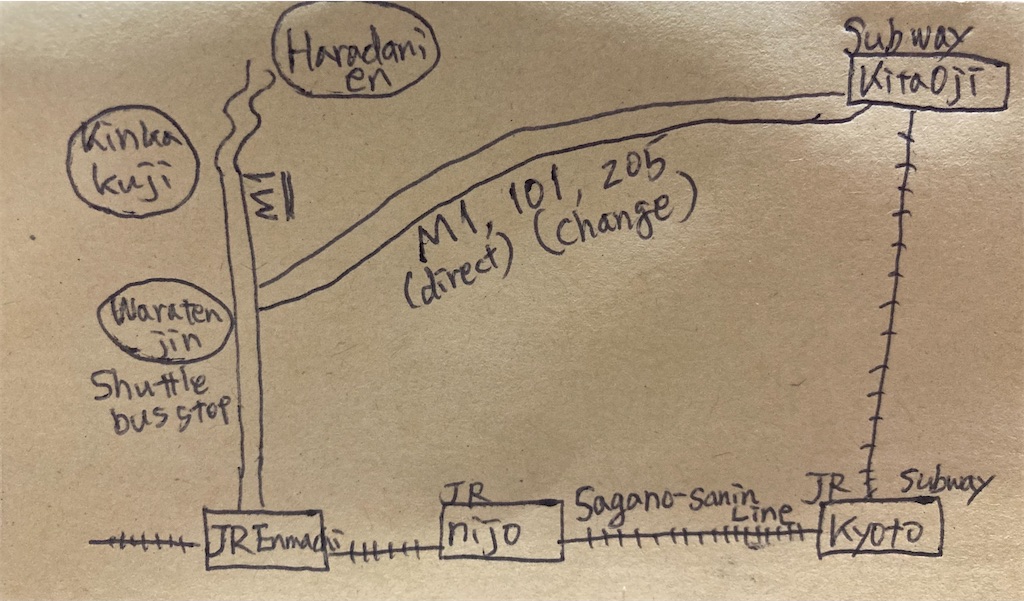 Haradani
en
Subway
KitaOji
Kinka
kuji
M1
M1, 101, 205
(direct) (change)
Waraten
jin
Shuttle
bus stop
JR Enmachi
JR
nijo
Sagano-Sanin
Line
JR Subway
Kyoto